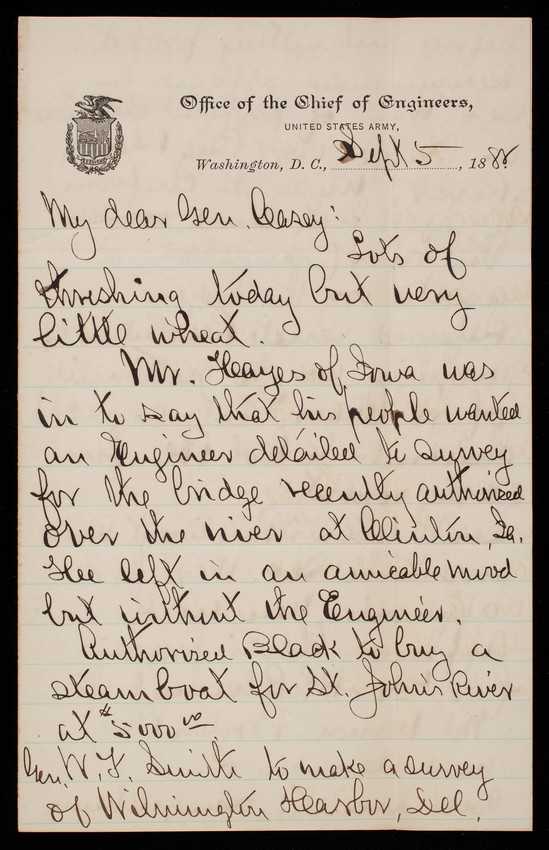 Office of the Chief of Engineers,
UNITED STATES ARMY,
Washington, D. C., Sept 5, 1888
My dear Gen. Casey:
Lots of
threshing today but very
little wheat.
Mr. Hayes of Iowa was
in to say that his people wanted
an Engineer detailed to survey
for the bridge recently authorized
over the river at Clinton, Ia.
Hee left in an amicable mood
but without the Engineer.
Authorized Black to buy a
steamboat for St. Johns River
at $5000.00
Gen. W. F. Smith to make a survey
of Wilmington Harbor, Del.